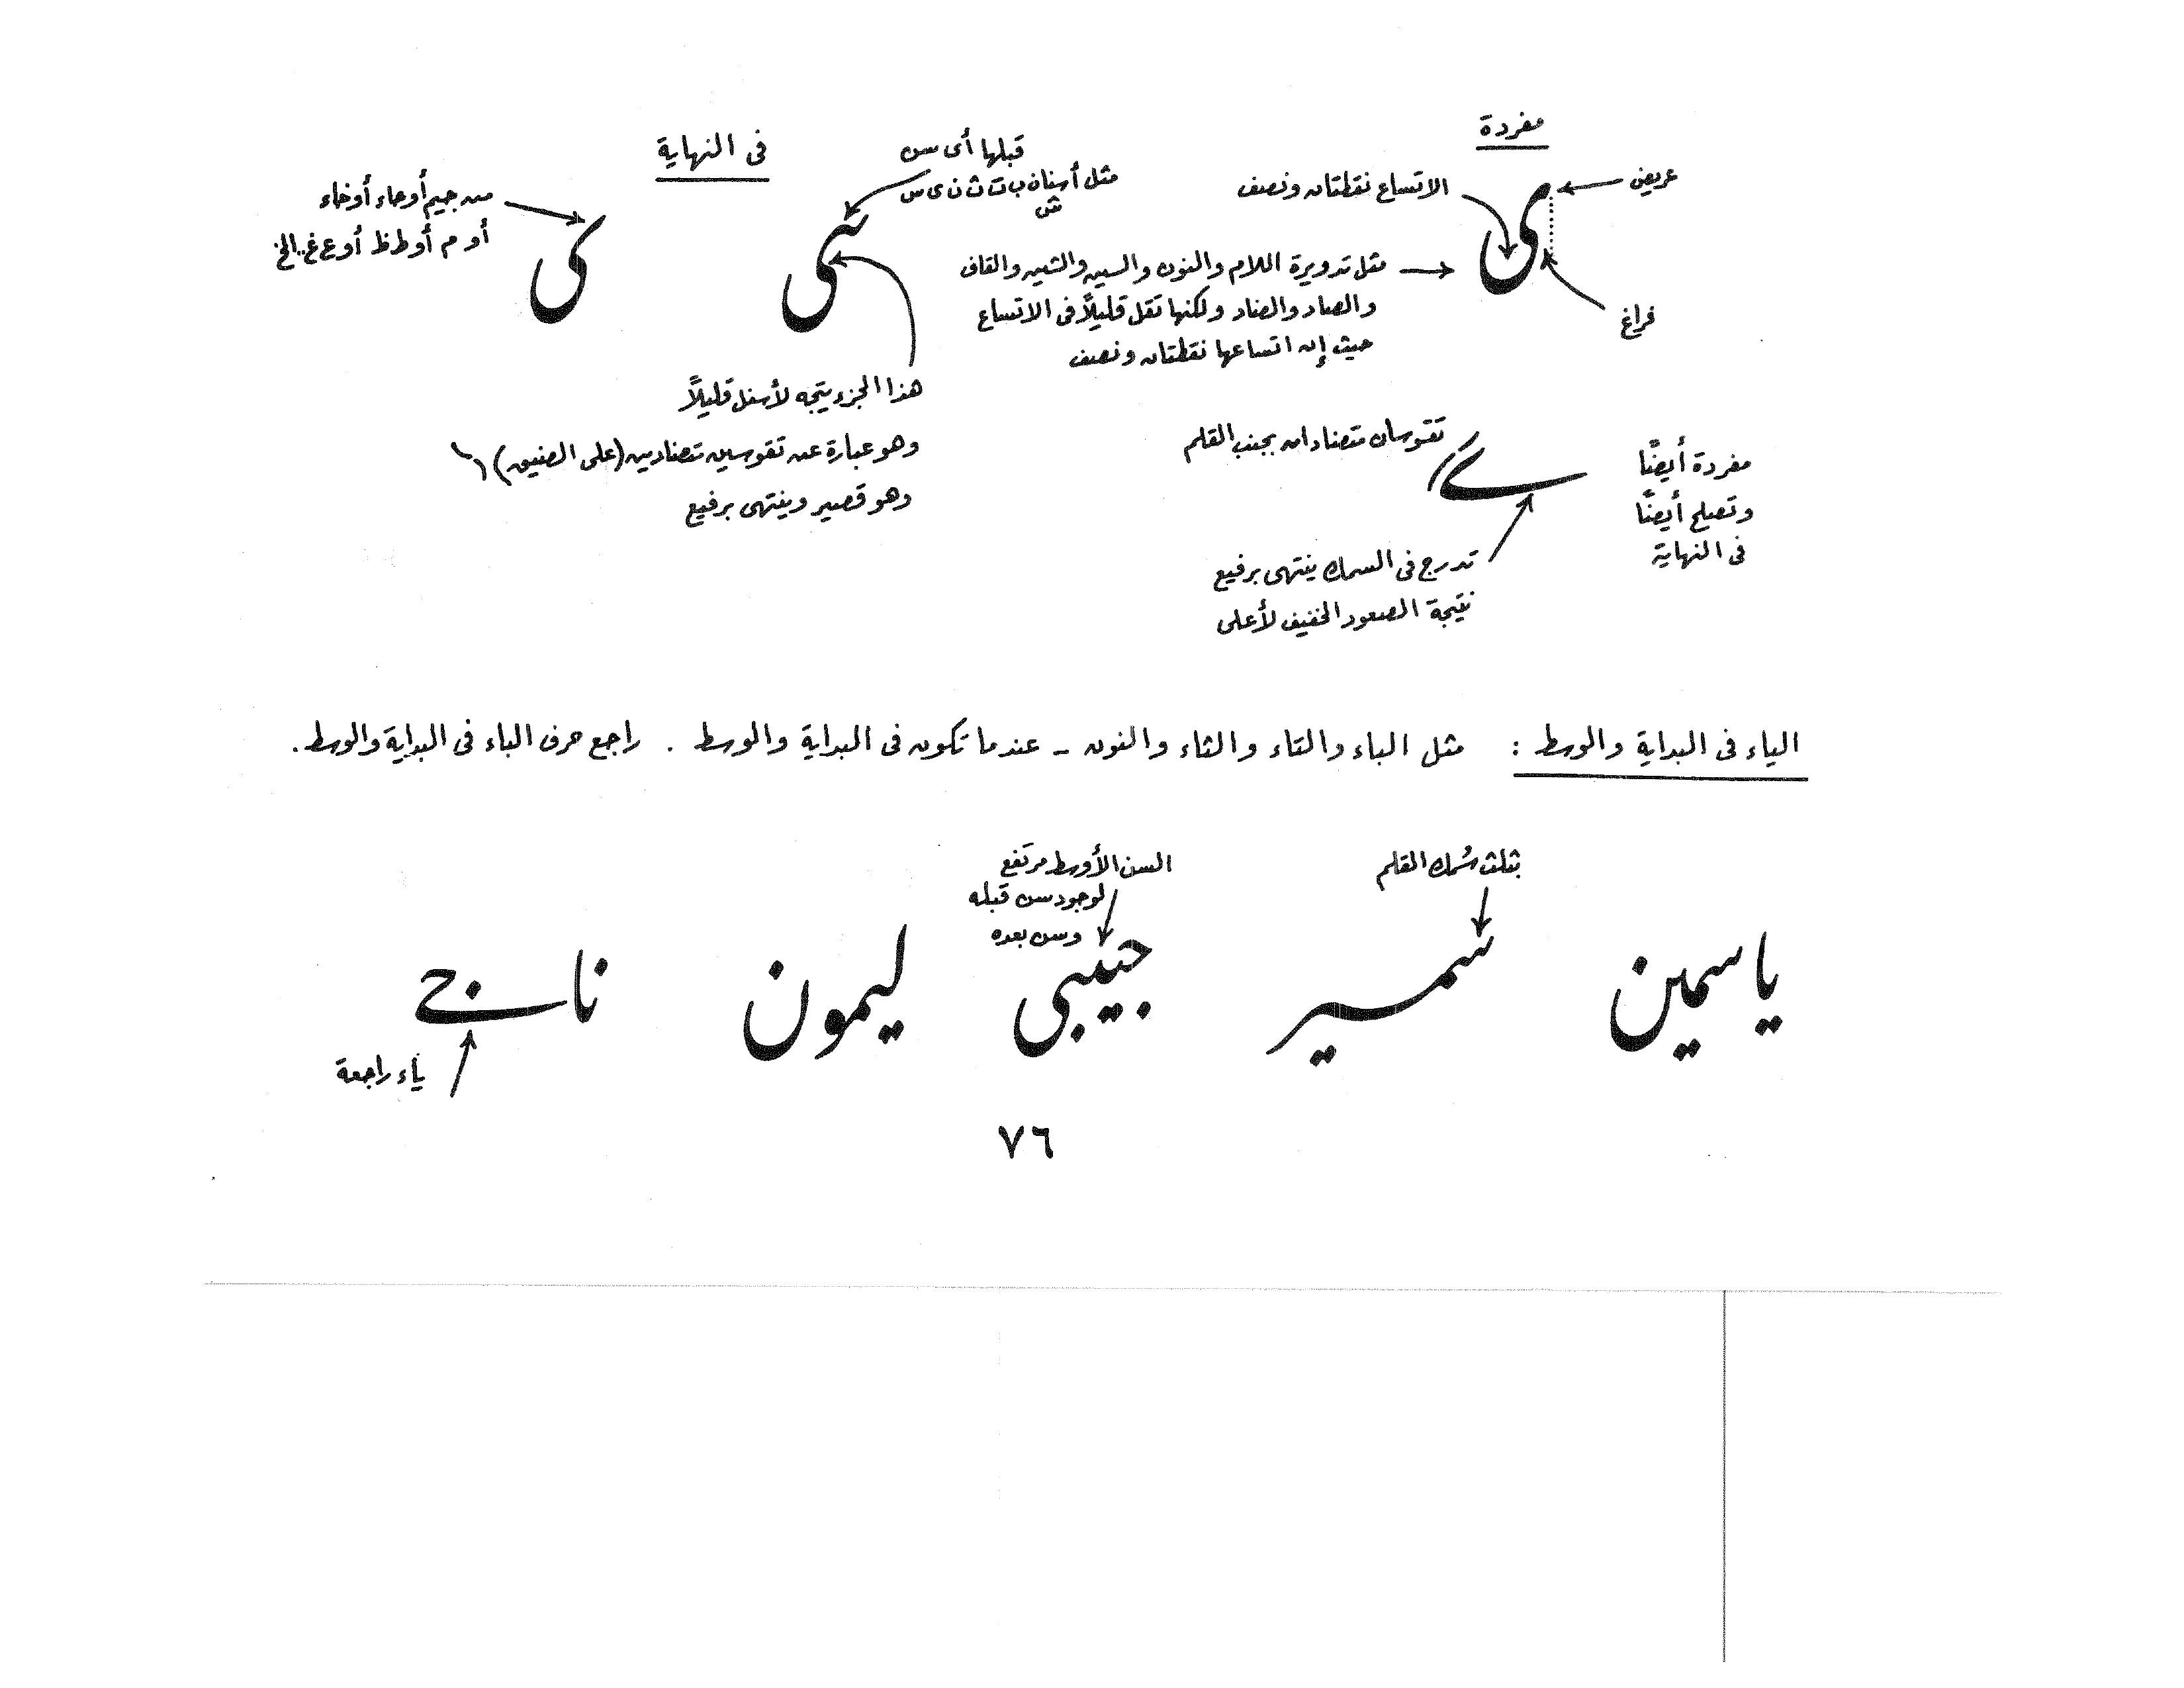 مفردة
عريض
الاتساع نقطتان ونصف
ى
مثل تدويرة اللام والنون والسين والشين والقاف
والصاد والضاد ولكنها تقل قليلاً فى الاتساع
حيث إن اتساعها نقطتان ونصف
فراغ
فى النهاية
قبلها أى سن
مثل أسنان ب ت ث ن ى س
ش
سى
هذا الجزء يتجه لأسفل قليلاً
وهو عبارة عن تقوسين متضادين (على الضيق)
وهو قصير وينتهى برفيع
من جيم أو حاء أو خاء
أو م أو ط ظ أو ع غ .. الخ
ى
مفردة أيضًا
وتصلح أيضًا
فى النهاية
تقوسان متضادان بجنب القلم
ے
تدرج فى السمك ينتهى برفيع
نتيجة الصعود الخفيف لأعلى
الياء فى البداية والوسط : مثل الباء والتاء والثاء والنون - عندما تكون فى البداية والوسط . راجع حرف الباء فى البداية والوسط .
بثلث سُمك القلم
السن الأوسط مرتفع
لوجود سن قبله
وسن بعده
ياسمين سمير حبيبي ليمون ناجے
ياء راجعة
٧٦